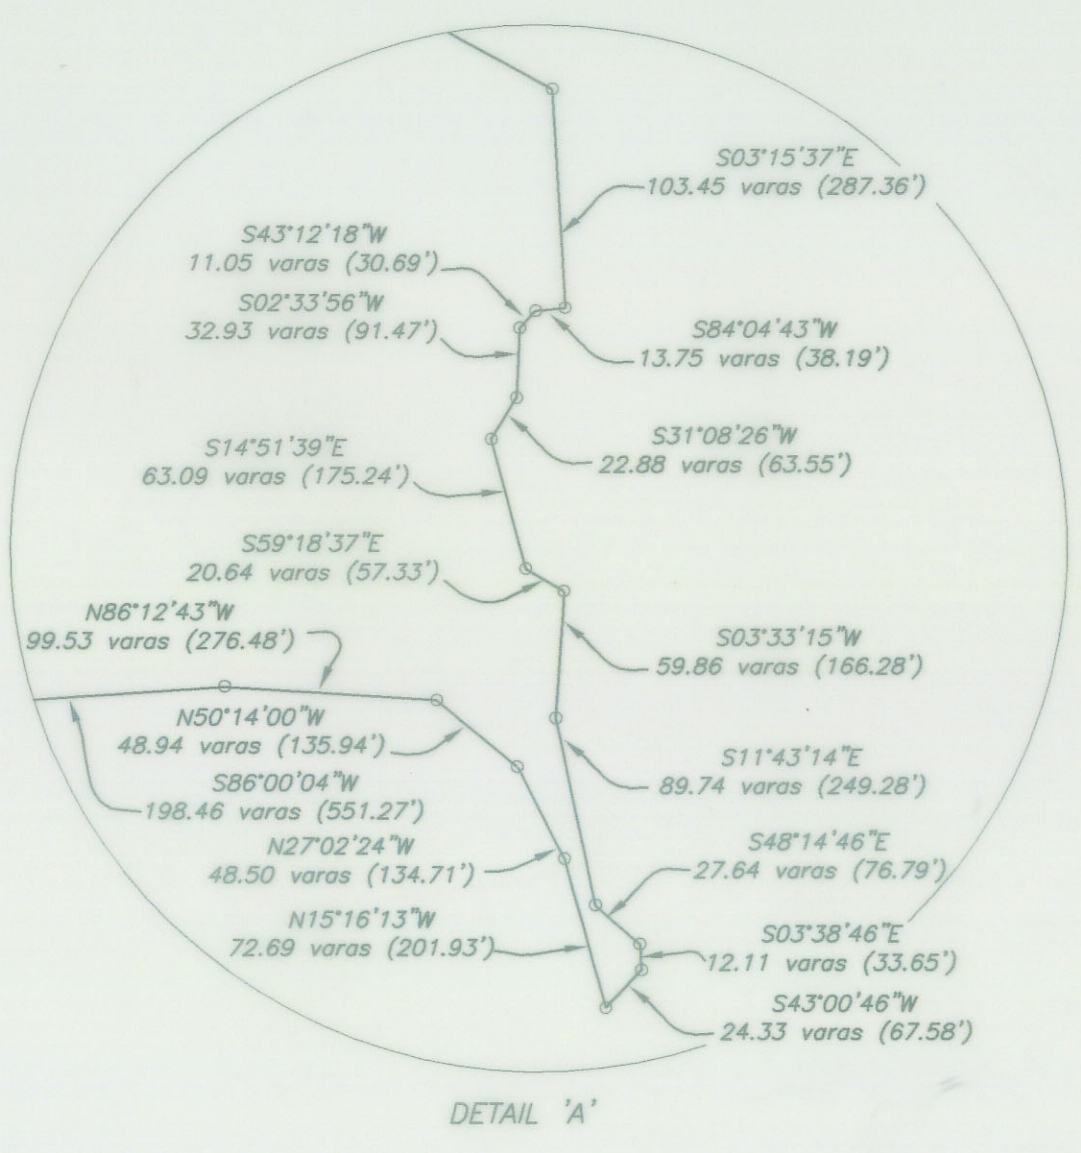 S03°15'37"E
103.45 varas (287.36')
S43°12'18"W
11.05 varas (30.69')
S02°33'56"W
32.93 varas (91.47')
S84°04'43"W
13.75 varas (38.19')
S31°08'26"W
22.88 varas (63.55')
S14°51'39"E
63.09 varas (175.24')
S59°18'37"E
20.64 varas (57.33')
N86°12'43"W
99.53 varas (276.48')
S03°33'15"W
59.86 varas (166.28')
N50°14'00"W
48.94 varas (135.94')
S86°00'04"W
198.46 varas (551.27')
S11°43'14"E
89.74 varas (249.28')
N27°02'24"W
48.50 varas (134.71')
S48°14'46"E
27.64 varas (76.79')
N15°16'13"W
72.69 varas (201.93')
S03°38'46"E
12.11 varas (33.65')
S43°00'46"W
24.33 varas (67.58')
DETAIL 'A'